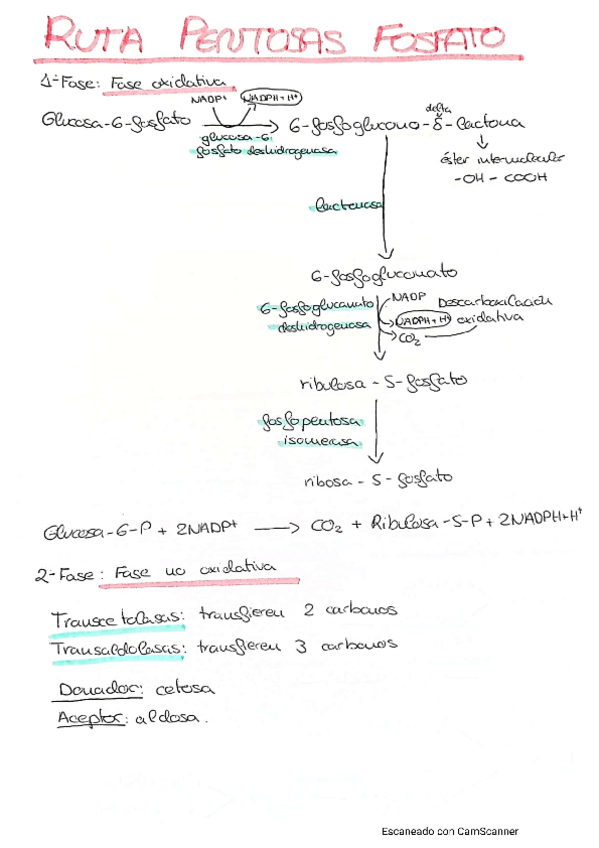 RUTA PENTOSAS FOSFATO
1-Fase: Fase oxidativa
NADP+ NADPH+H+
Glucosa-6-fosfato → 6-fosfoglucono-δ-lactona
delta
glucosa-6-
fosfato deshidrogenasa
↓
éster intermolecular
-OH - COOH
lactonasa
6-fosfogluconato
6-fosfogluconato
deshidrogenasa
NADP
NADPH+H+
CO2
Descarboxilación
oxidativa
ribulosa-5-fosfato
fosfopentosa
isomerasa
ribosa-5-fosfato
Glucosa-6-P + 2NADP+ → CO2 + Ribulosa-5-P + 2NADPH+H+
2-Fase: Fase no oxidativa
Transcetolasas: transfieren 2 carbonos
Transaldolasas: transfieren 3 carbonos
Donador: cetosa
Aceptor: aldosa.
Escaneado con CamScanner